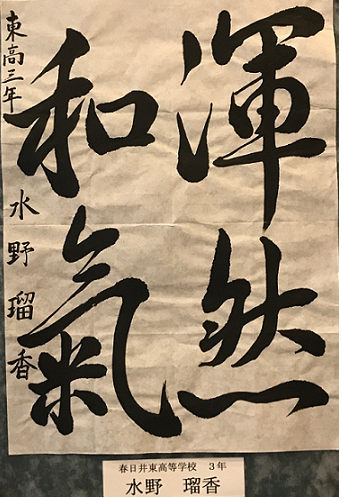 渾然
和氣
東高三年 水野瑠香
春日井東高等学校 3年
水野 瑠香